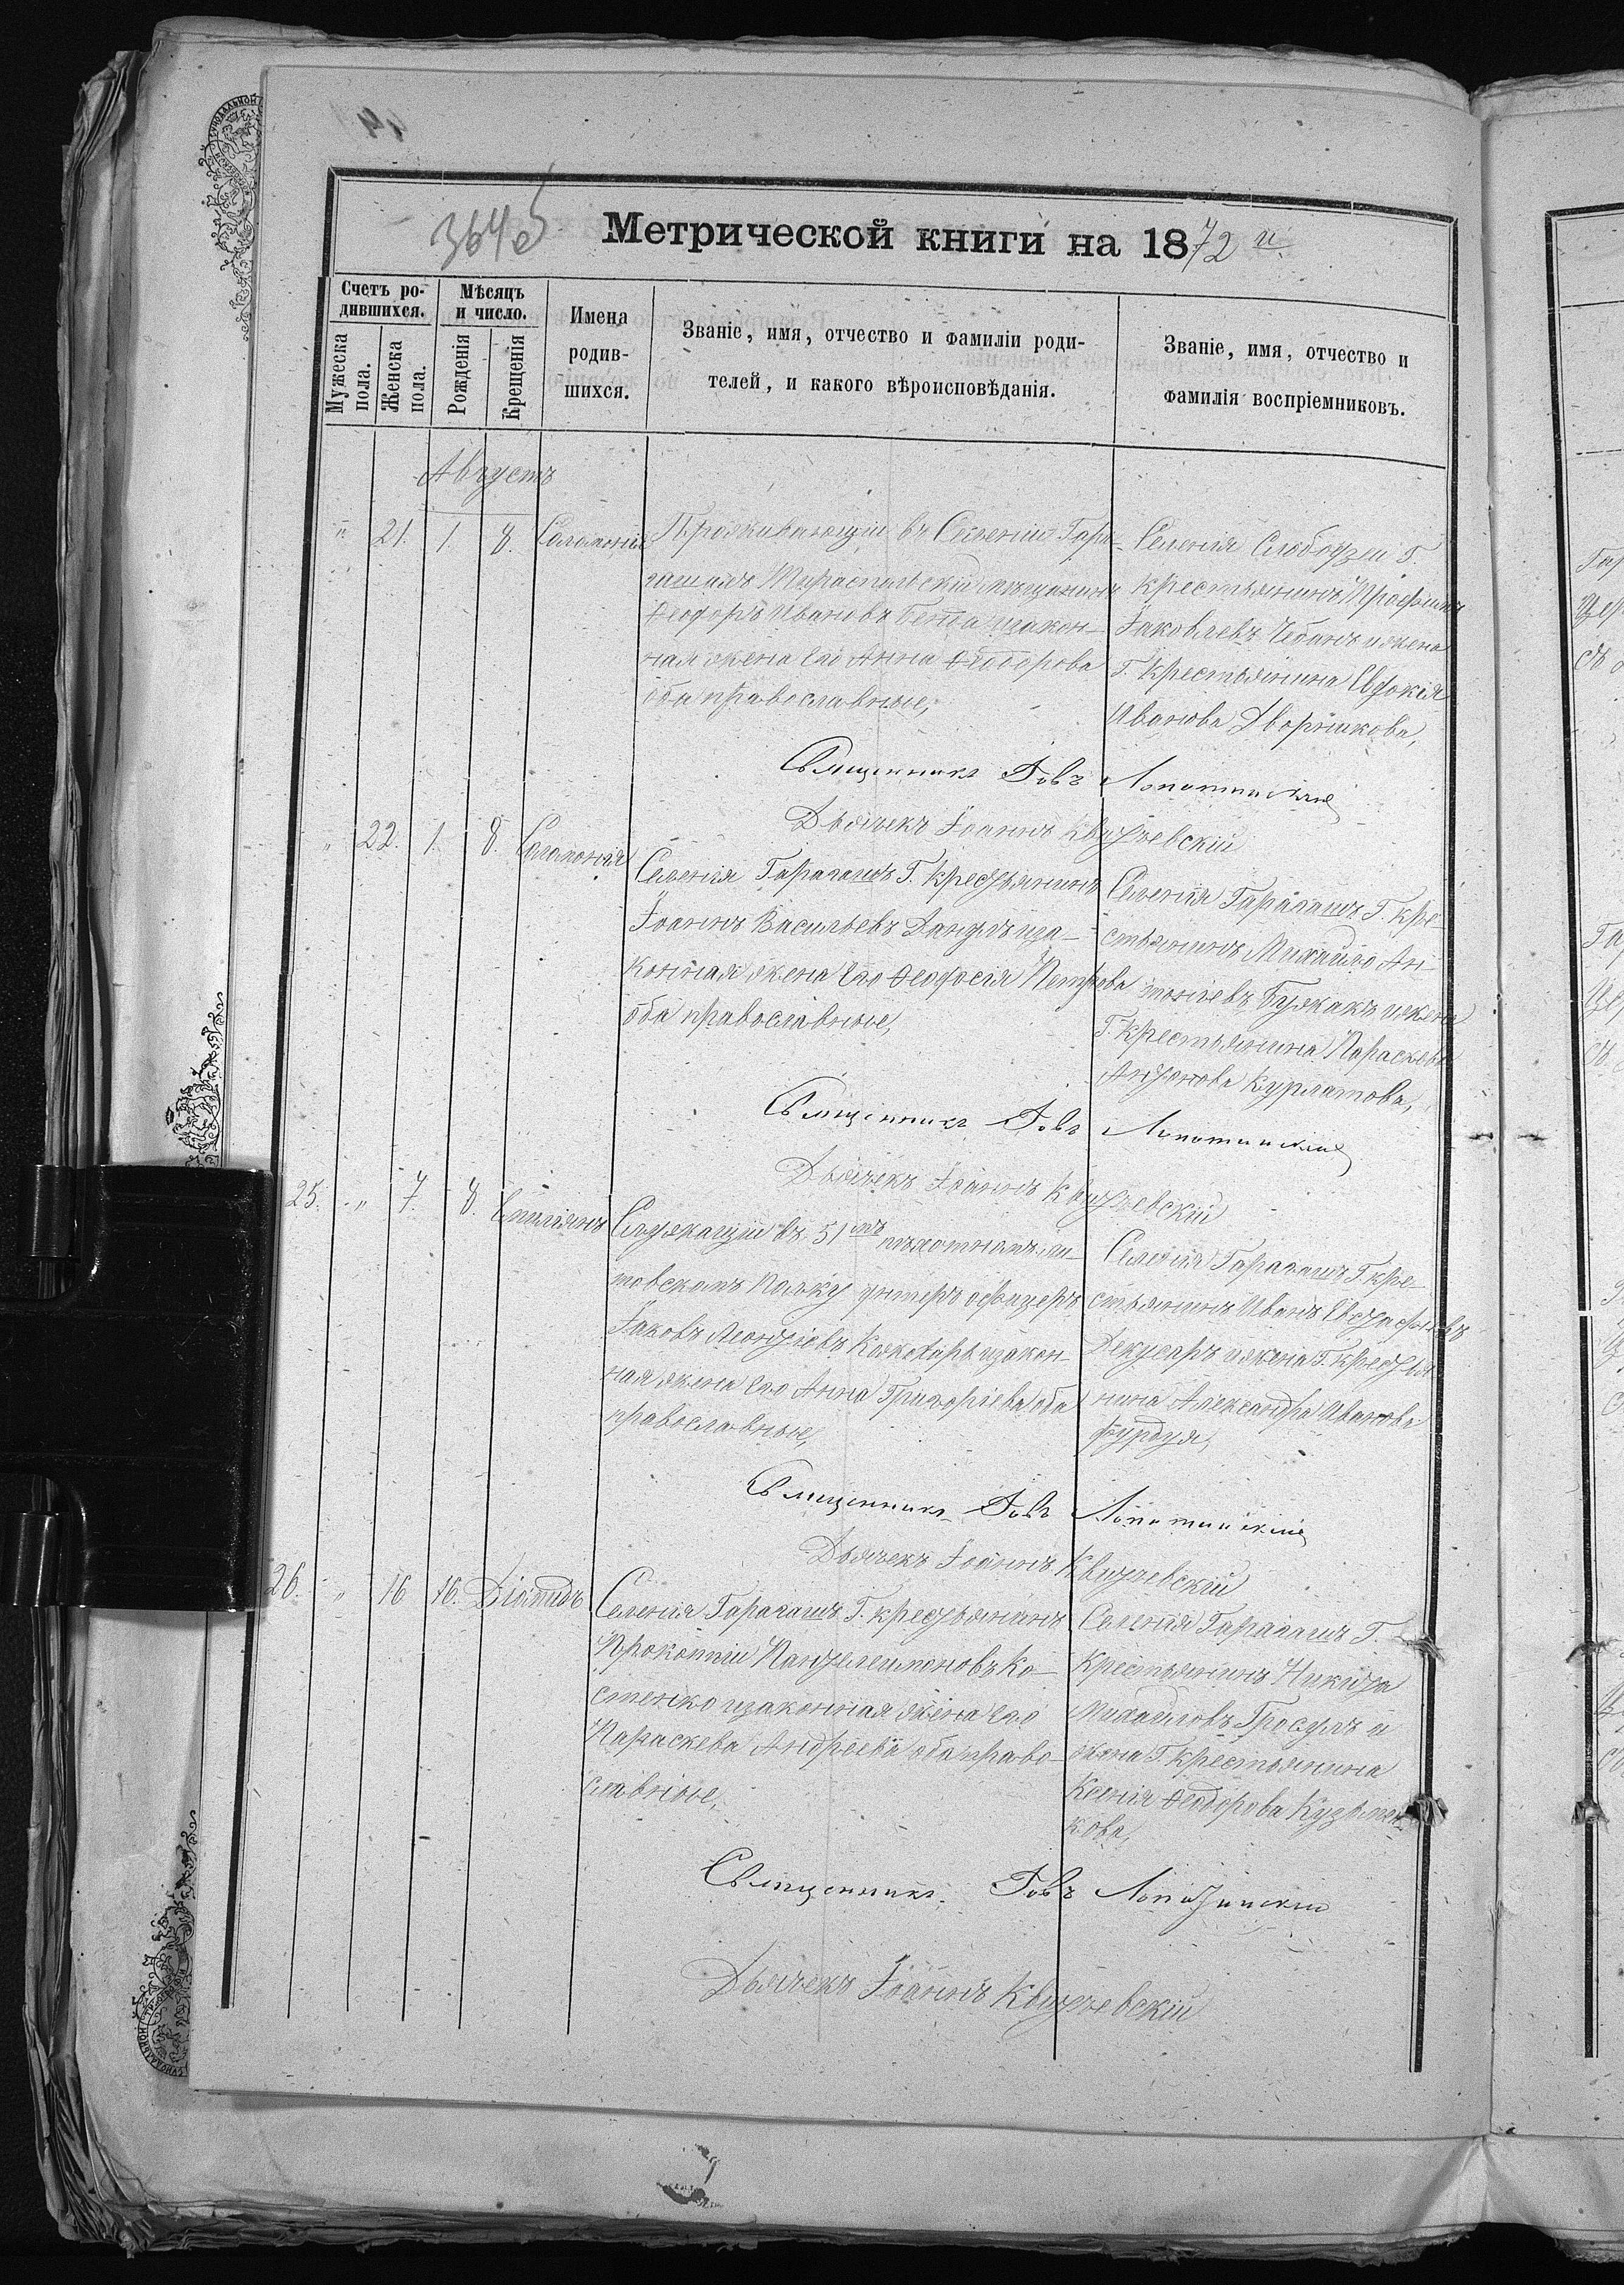 3645
Метрической книги на 1872 й.
Счетъ ро-
дившихся.
Мѣсяцъ
и число.
Мужеска
пола.
Женска
пола.
Рожденія
Крещенія
Имена
родив-
шихся.
Званіе, имя, отчество и фамиліи роди-
телей, и какого вѣроисповѣданія.
Званіе, имя, отчество и
фамилія воспріемниковъ.
Августъ
" 21. 1. 8. Соломонія
Проживающій въ Селеніи Гара-
гашахъ Тираспольскій мѣщанинъ
Ѳеодоръ Ивановъ изакон-
ная жена его Анна Ѳеодорова
оба православные,
Селенія Слободзеи Г.
крестьянинъ Трофимъ
Іаковлевъ Чебанъ и жена
Г. крестьянина Евдокія
Иванова Дворникова,
Священникъ Іовъ Лопатинскій
Дьячекъ Іоаннъ Квитчевскій
" 22. 1. 8. Соломонія
Селенія Гарагашъ Г. крестьянинъ
Іоаннъ Васильевъ иза-
конная жена его Ѳеодосія Петрова
оба православные,
Селенія Гарагашъ Г. кре-
стьянинъ Михайло Ан-
тоніевъ Бужакъ и жена
Г. крестьянина Параскева
Антонова Курлатова,
Священникъ Іовъ Лопатинскій
Дьячекъ Іоаннъ Квитчевскій
25. " 7. 8. Емиліянъ
Служащій въ 51мъ пѣхотномъ ли-
товскомъ полку унтеръ офицеръ
Іаковъ Леонтіевъ изакон-
ная жена его Анна Григоріева оба
православные,
Селенія Гарагашъ Г. кре-
стьянинъ Иванъ Евстафіевъ
Декусаръ и жена Г. крестья-
нина Александра Иванова
Фурдуя,
Священникъ Іовъ Лопатинскій
Дьячекъ Іоаннъ Квитчевскій
26. " 16 16. Діомидъ
Селенія Гарагашъ Г. крестьянинъ
Прокопій Пантелеимоновъ Ко-
стенко изаконная жена его
Параскева Андреева оба право-
славные,
Селенія Гарагашъ Г.
крестьянинъ Никита
Михайловъ Гросулъ и
жена Г. крестьянина
Ксенія Ѳеодорова Кузьмен-
кова,
Священникъ Іовъ Лопатинскій
Дьячекъ Іоаннъ Квитчевскій